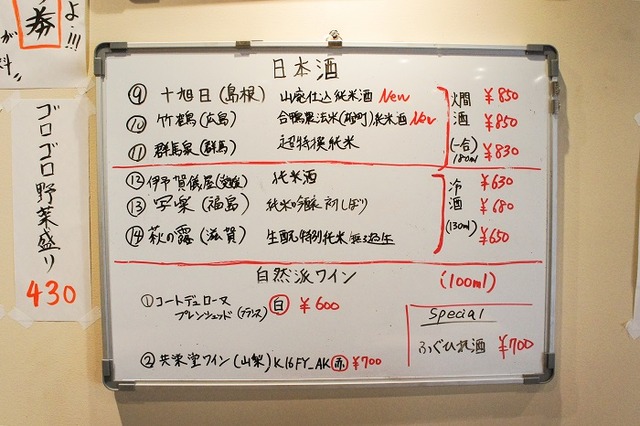 よ!!!
券
が
料
ゴロゴロ野菜盛り
430
日本酒
⑨ 十旭日(島根) 山廃仕込純米酒 New ¥850
⑩ 竹鶴(広島) 合鴨農法米(雄町)純米酒 New ¥850
⑪ 群馬泉(群馬) 超特撰純米 ¥830
燗酒(一合)180ml
⑫ 伊予賀儀屋(愛媛) 純米酒 ¥630
⑬ 写楽(福島) 純米吟醸 初しぼり ¥680
⑭ 萩の露(滋賀) 生酛特別純米 ¥650
冷酒(130ml)
自然派ワイン (100ml)
① コートデュローヌ
ブレンシェッド(フランス) 白 ¥600
② 共栄堂ワイン(山梨) K16FY_AK 赤 ¥700
Special
ふぐひれ酒 ¥700